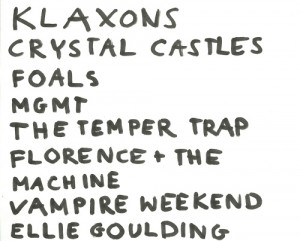 KLAXONS
CRYSTAL CASTLES
FOALS
MGMT
THE TEMPER TRAP
FLORENCE + THE
MACHINE
VAMPIRE WEEKEND
ELLIE GOULDING